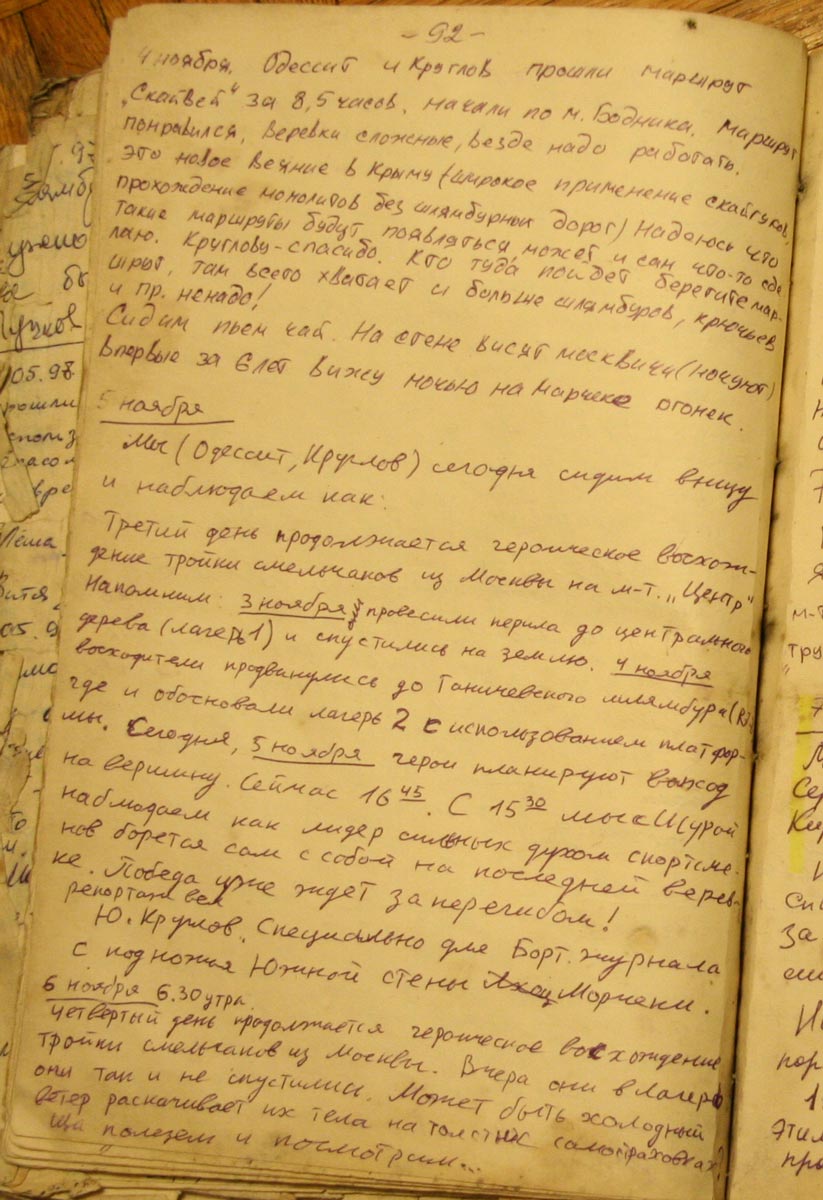 - 92 -
4 ноября. Одессит и Круглов прошли маршрут
„Скайвей" за 8,5 часов. Начали по м. Бодника. Маршрут
понравился, веревки сложные, везде надо работать.
Это новое веяние в Крыму (широкое применение скайгуков,
прохождение монолитов без шлямбурных дорог) Надеюсь что
такие маршруты будут появляться, может и сам что-то сде
лаю. Круглову - спасибо. Кто туда пойдет берегите мар-
шрут, там всего хватает и больше шлямбуров, крючьев
и пр. ненадо!
Сидим пьем чай. На стене висят москвичи (ночуют)
Впервые за 6 лет вижу ночью на Марчеке огонек.
5 ноября
Мы (Одессит, Круглов) сегодня сидим внизу
и наблюдаем как:
Третий день продолжается героическое восхож-
дение тройки смельчаков из Москвы на м-т. „Центр"
Напомним: 3 ноября провесили перила до центрального
дерева (лагерь 1) и спустились на землю. 4 ноября
восходители продвинулись до Ганичевского шлямбура
где и обосновали лагерь 2 с использованием платфор-
мы. Сегодня, 5 ноября герои планируют выход
на вершину. Сейчас 16 45. С 15 30 мы с Шурой
наблюдаем как лидер сильных духом спортсме-
нов борется сам с собой на последней верев-
ке. Победа уже ждет за перегибом!
репортаж вел
Ю. Круглов. Специально для Борт. журнала
с подножия Южной стены Морчеки.
6 ноября 6.30 утра.
Четвертый день продолжается героическое восхождение
тройки смельчаков из Москвы. Вчера они в лагерь
они так и не спустились. Может быть холодный
ветер раскачивает их тела на толстых самостраховках?
Ща полезем и посмотрим...
05.98